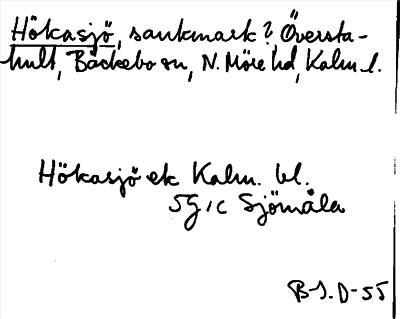 Hökasjö, sankmark?, Översta-
hult, Bäckebo sn, N. Möre hd, Kalm. l.
Hökasjö ek Kalm. bl.
5g 1c Sjömåla
B-J. D-55